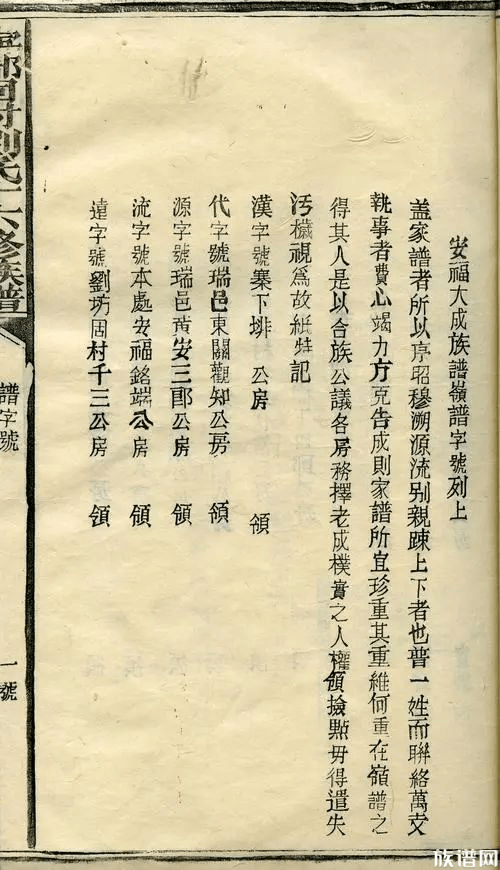 安福大成族譜嶺譜字號列上
蓋家譜者所以序昭穆溯源流别親踈上下者也普一姓而聯絡萬支
執事者費心竭力方克告成則家譜所宜珍重其重維何重在嶺譜之
得其人是以合族公議各房務擇老成樸實之人權領撿㸃毋得遣失
汚穢視爲故紙特記
漢字號寨下排 公房 領
代字號瑞邑東關觀知公房 領
源字號瑞邑黄安三郎公房 領
流字號本處安福銘端公房 領
遠字號劉坊周村千三公房 領
劉氏十六修族譜
譜字號
一號
族谱网